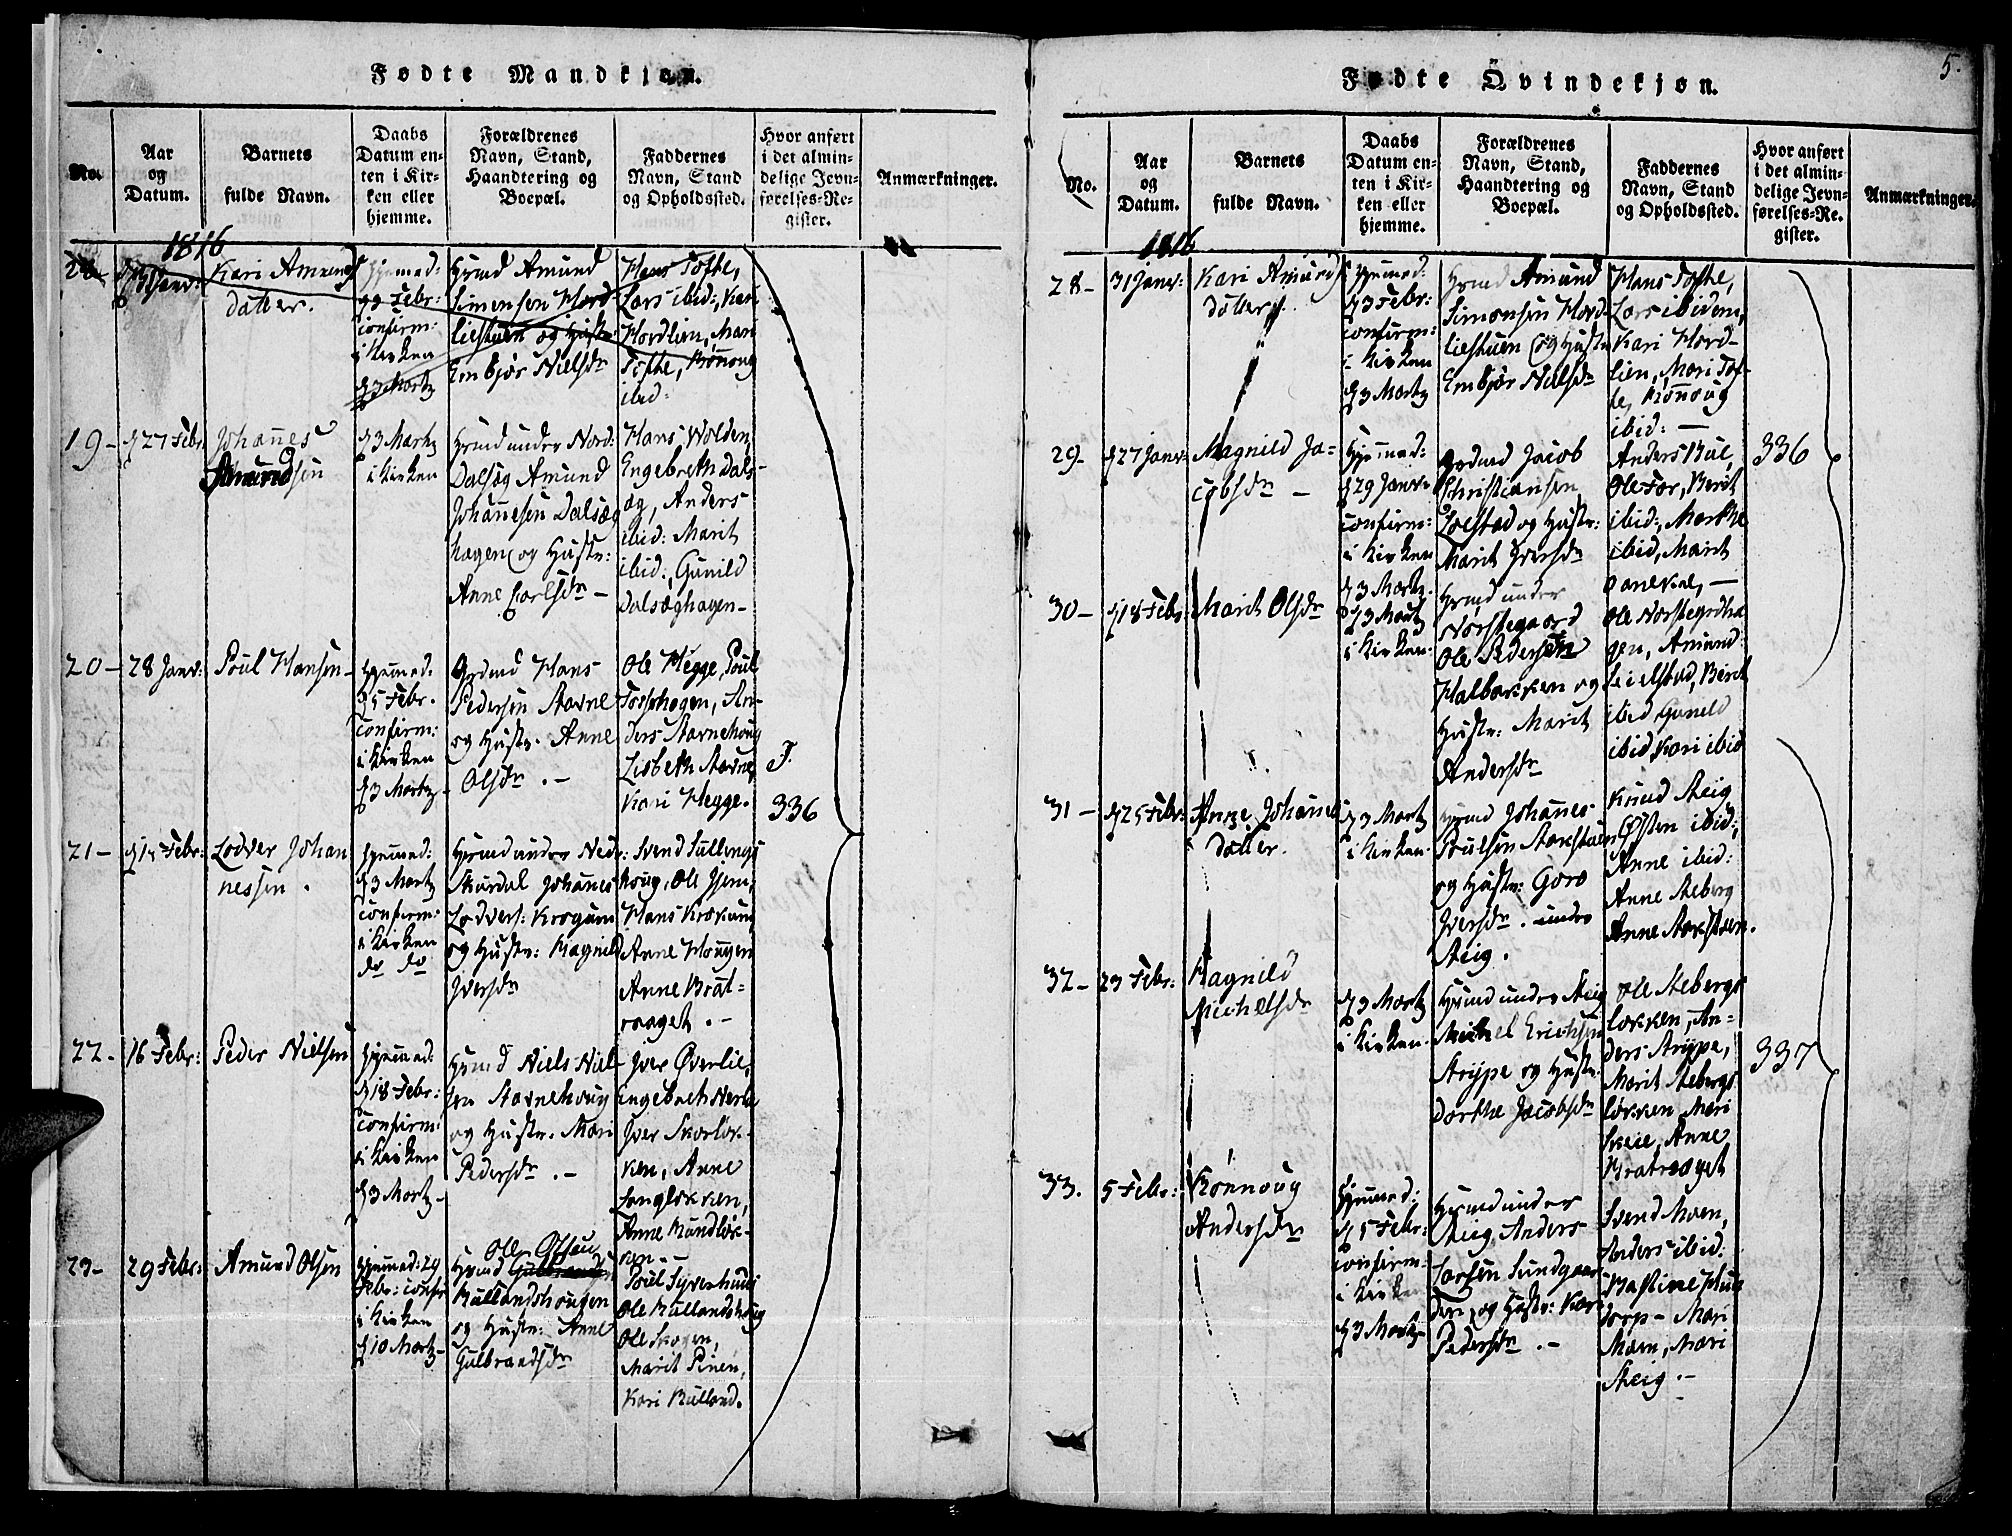 Fødte Mandkjøn.
No.
Aar
og
Datum.
Barnets
fulde Navn.
Daabs
Datum en-
ten i Kir-
ken eller
hjemme.
Forældrenes
Navn, Stand,
Haandtering og
Boepæl.
Faddernes
Navn, Stand
og Opholdssted.
Hvor anført
i det almin-
delige Jevn-
førelses-Re-
gister.
Anmærkninger.
1816
Kari Amunds
datter.
Hjemmed:
Febr:
confirm:
i Kirken
d 3 Martz
Amund
Simonsen Nord
liestuen og Hustr:
Embjør Nielsdr
Hans Tofte,
Lars ibid:, Kari
Nordlien, Mari
Tofte, Rønnoug
ibid:
19-
d 27 Febr
Johannes
Amundsen
d 3 Martz
i Kirken
Hrmd under Nord:
Dalsæg Amund
Johannesen Dalsæg
hagen og Hustr:
Anne Carlsdr -
Hans Volden,
Engebreth Dals-
æg, Anders
ibid: Marit
ibid:, Gunild
Dalsæghagen-
20-
28 Janv:
Poul Hansen-
Hjemmed:
d 5 Febr.
confirm:
i Kirken
d 3 Martz-
Grdmd Hans
Pedersen Stavne
og Hustr. Anne
Olsdr. -
Ole Hegge, Poul
Fosshagen, An-
ders Stavnehoug
Lisbeth Stavne,
Kari Hegge.
336
21-
Febr:
Lodver Johan
nessen.
Hjemmed:
d 3 Martz
confirm:
i Kirken
do do
Hrmd under Nedr:
Skurdal Johanes
Lodvers:
og Hustr: Ragnild
Iversdr
Svend
houg, Ole
Hans
Anne Hougen
Anne Brat-
ræget. -
22-
16 Febr:
Peder Nielsen
Hjemmed:
d 18 Febr:
confirm:
i Kirken
d 3 Martz-
Hrmd Niels Niel
sen Stavnehoug
og Hustr. Mari
Pedersdr. -
Iver Øverlie,
Engebreth
Iver Skorløk-
ken, Anne
Langløkken,
Anne Rundløk-
ken -
23-
29 Febr:
Amund Olsen
Hjemmed: 29
Febr: confir
i Kirken
d 10 Martz-
Ole
Hrmd
Bullandshougen
og Hustr: Anne
Gulbrandsdr
Poul
Ole Bullandshoug
Ole Skogen,
Marit
Kari Bulland.
Fødte Qvindekjøn.
5.
No.
Aar
og
Datum.
Barnets
fulde Navn.
Daabs
Datum en-
ten i Kir-
ken eller
hjemme.
Forældrenes
Navn, Stand,
Haandtering og
Boepæl.
Faddernes
Navn, Stand
og Opholdssted.
Hvor anført
i det almin-
delige Jevn-
førelses-Re-
gister.
Anmærkninger.
1816
28-
31 Janv:
Kari Amunds
dotter.
Hjemmed:
d 3 Febr:
confirm:
i Kirken
d 3 Martz
Hrmd Amund
Simonsen Nord-
liestuen og Hustr
Embjør Nielsdr
Hans Tofte,
Lars ibidem,
Kari Nord-
lien, Mari Tof-
te, Rønnoug
ibid: -
29-
d 27 Janv:
Magnild Ja-
cobsdr -
Hjemmed:
d 29 Janv:
confirm:
i Kirken
d 3 Martz.
Grdmd Jacob
Christiansen
og Hustr:
Marit Iversdr
Anders Bue,
Ole For, Berit
ibid:, Marthe
ibid, Marit
336
30-
d 18 Febr
Marit Olsdr
d 3 Martz
i Kirken.
Hrmd under
Norstegaard
Ole Pedersen
Halbakken og
Hustr: Marit
Andersdr
Ole Norstegrdha
gen, Amund
Berit
ibid Guneld
ibid Kari ibid
31-
d 25 Febr:
Anne Johanes
dotter.
d 3 Martz
i Kirken.
Hrmd Johanes
Poulsen
og Hustr: Goro
Iversdr. under
Steig.
Knud Steig
Østen ibid:,
Anne ibid:
Anne Steberg
Anne
32-
23 Febr:
Ragnild
Michelsdr
d 3 Martz
i Kirken.
Hrmd under Steig
Michel Erichsen
Strype og Hustr.
Dorthe Jacobsdr
Ole Stebergs
løkken, An-
ders Strype,
Marit Stebergs
løkken Mari
Skeie, Anne
Bratræget
337
33.
5 Febr:
Rønnoug
Andersdr
Hjemmed:
d 5 Febr:
confirm:
i Kirken
d 3 Martz
Hrmd under
Steig Anders
Larsen Sundgaar
den, og Hustr: Kari
Pedersdr. -
Svend Moen,
Anders ibid:
- Mari
Moen, Mari
Steig. -